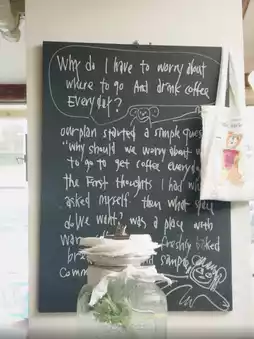 Why do I have to worry about
where to go And drink coffee
Everyday?
our plan started a simple ques
"why should we worry about w
to go to get coffee everyda
the First thoughts I had wh
asked myself, then what
do We want? was a place with
freshly baked
simple
Comm